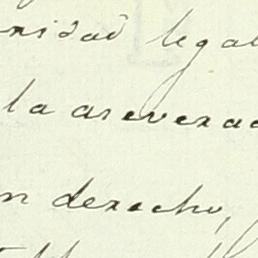 nidad legal
la aseverac
n derecho,